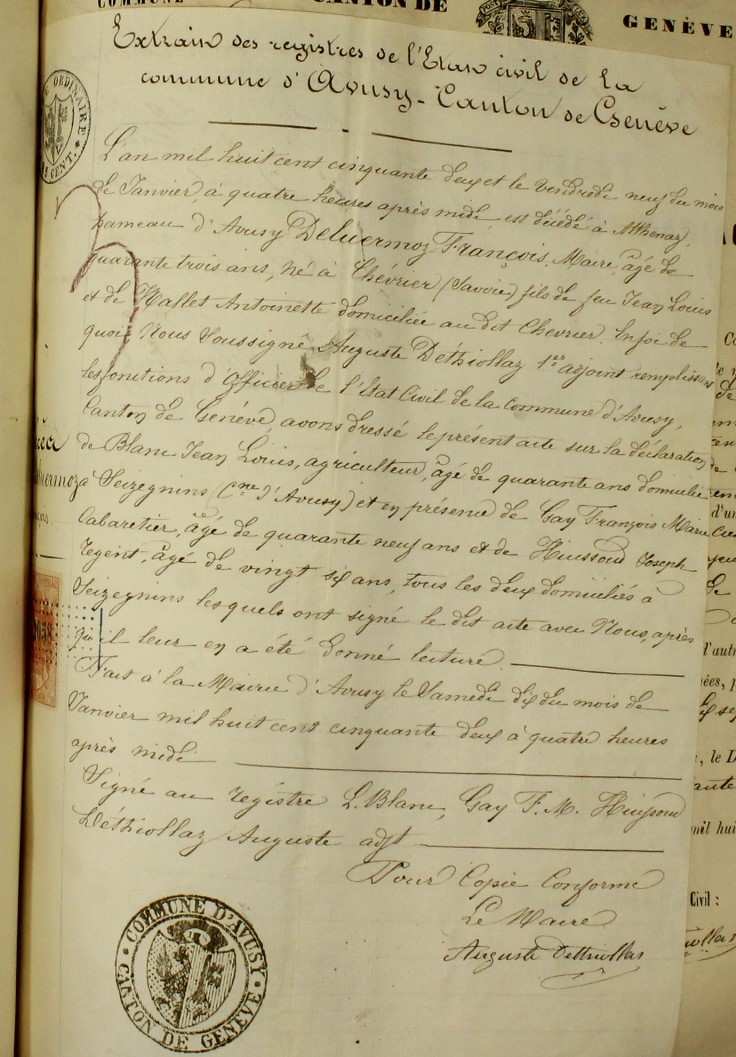 COMMUNE
CANTON DE
GENÈVE
Extrait des registres de l'Etat civil de la
commune d'Avusy - Canton de Genève
ORDINAIRE
CENT.
L'an mil huit cent cinquante deux et le Vendredi neuf du mois
de Janvier, à quatre heures après midi, est décédé à Athenaz,
hameau d'Avusy Deluermoz François, Maire, âgé de
quarante trois ans, né à Chévrier (Savoie) fils de feu Jean Louis
et de Mallet Antoinette domiciliée au dit Chevrier. En foi de
quoi Nous Soussigné, Auguste Déthiollaz 1er adjoint remplissant
les fonctions d'Officier de l'Etat Civil de la Commune d'Avusy,
Canton de Genève, avons dressé le présent acte sur la déclaration
de Blanc Jean Louis, agriculteur, âgé de quarante ans domicilié
à Sezegnins (Cne d'Avusy) et en présence de Gay François Marie
Cabaretier, âgé de quarante neuf ans et de Huissoud Joseph
Régent, âgé de vingt six ans, tous les deux domiciliés à
Sezegnins lesquels ont signé le dit acte avec Nous, après
qu'il leur en a été donné lecture.
Fait à la Mairie d'Avusy le Samedi dix du mois de
Janvier mil huit cent cinquante deux à quatre heures
après midi
Signé au registre L. Blanc, Gay F. M. Huissoud
Déthiollaz Auguste adjt
Pour Copie Conforme
Le Maire
Auguste Dethiollaz
COMMUNE D'AVUSY
CANTON DE GENÈVE
d'un
d'autr
nées, p
, le D
mil hui
Civil :